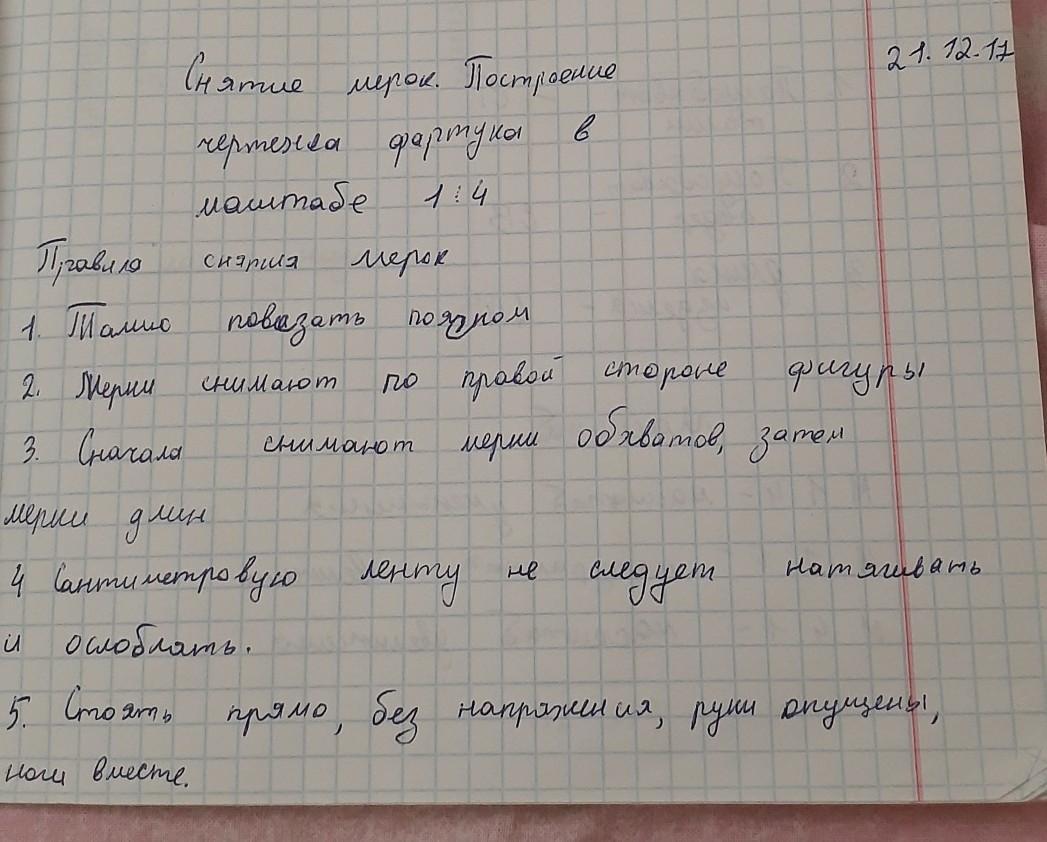 21.12.17
Снятие мерок. Построение
чертежа фартука в
маштабе 1:4
Правила снятия мерок
1. Талию повязать поясном
2. Мерки снимают по правой стороне фигуры
3. Сначала снимают мерки обхватов, затем
мерки длин
4 Сантиметровую ленту не следует натягивать
и ослоблять.
5. Стоять прямо, без напряжения, руки опущены,
ноги вместе.